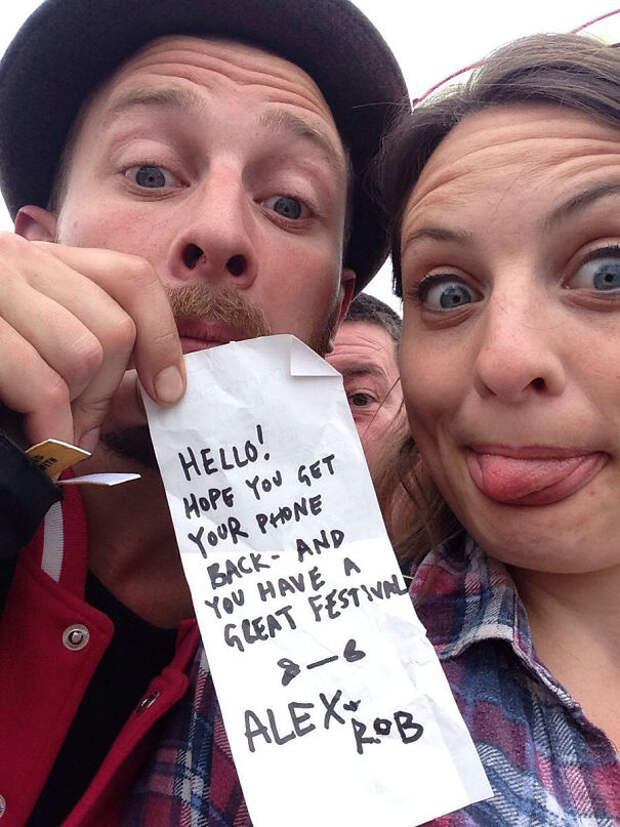 HELLO!
HOPE YOU GET
YOUR PHONE
BACK- AND
YOU HAVE A
GREAT FESTIVAL
8—6
ALEX+
ROB